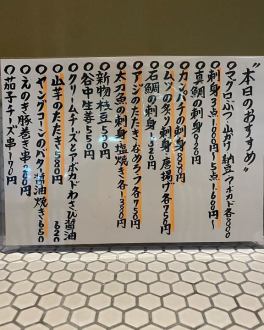 "本日のおすすめ"
●マグロぶつ・山かけ 納豆・アボカド各800
●刺身3点1,000円〜5点1,600円〜
●真鯛の刺身
●カンパチの刺身
●ムツの炙り刺身・唐揚げ各750円
●石鯛の刺身
●アジのたたき・なめろう・フライ各750円
●太刀魚の刺身・塩焼き各1,300円
●新物枝豆550円
●谷中生姜550円
●クリームチーズとアボカドわさび醤油620
●山芋のたたき580円
●ヤングコーンのバター醤油焼き650
●えのき豚巻き串
茄子チーズ串170円